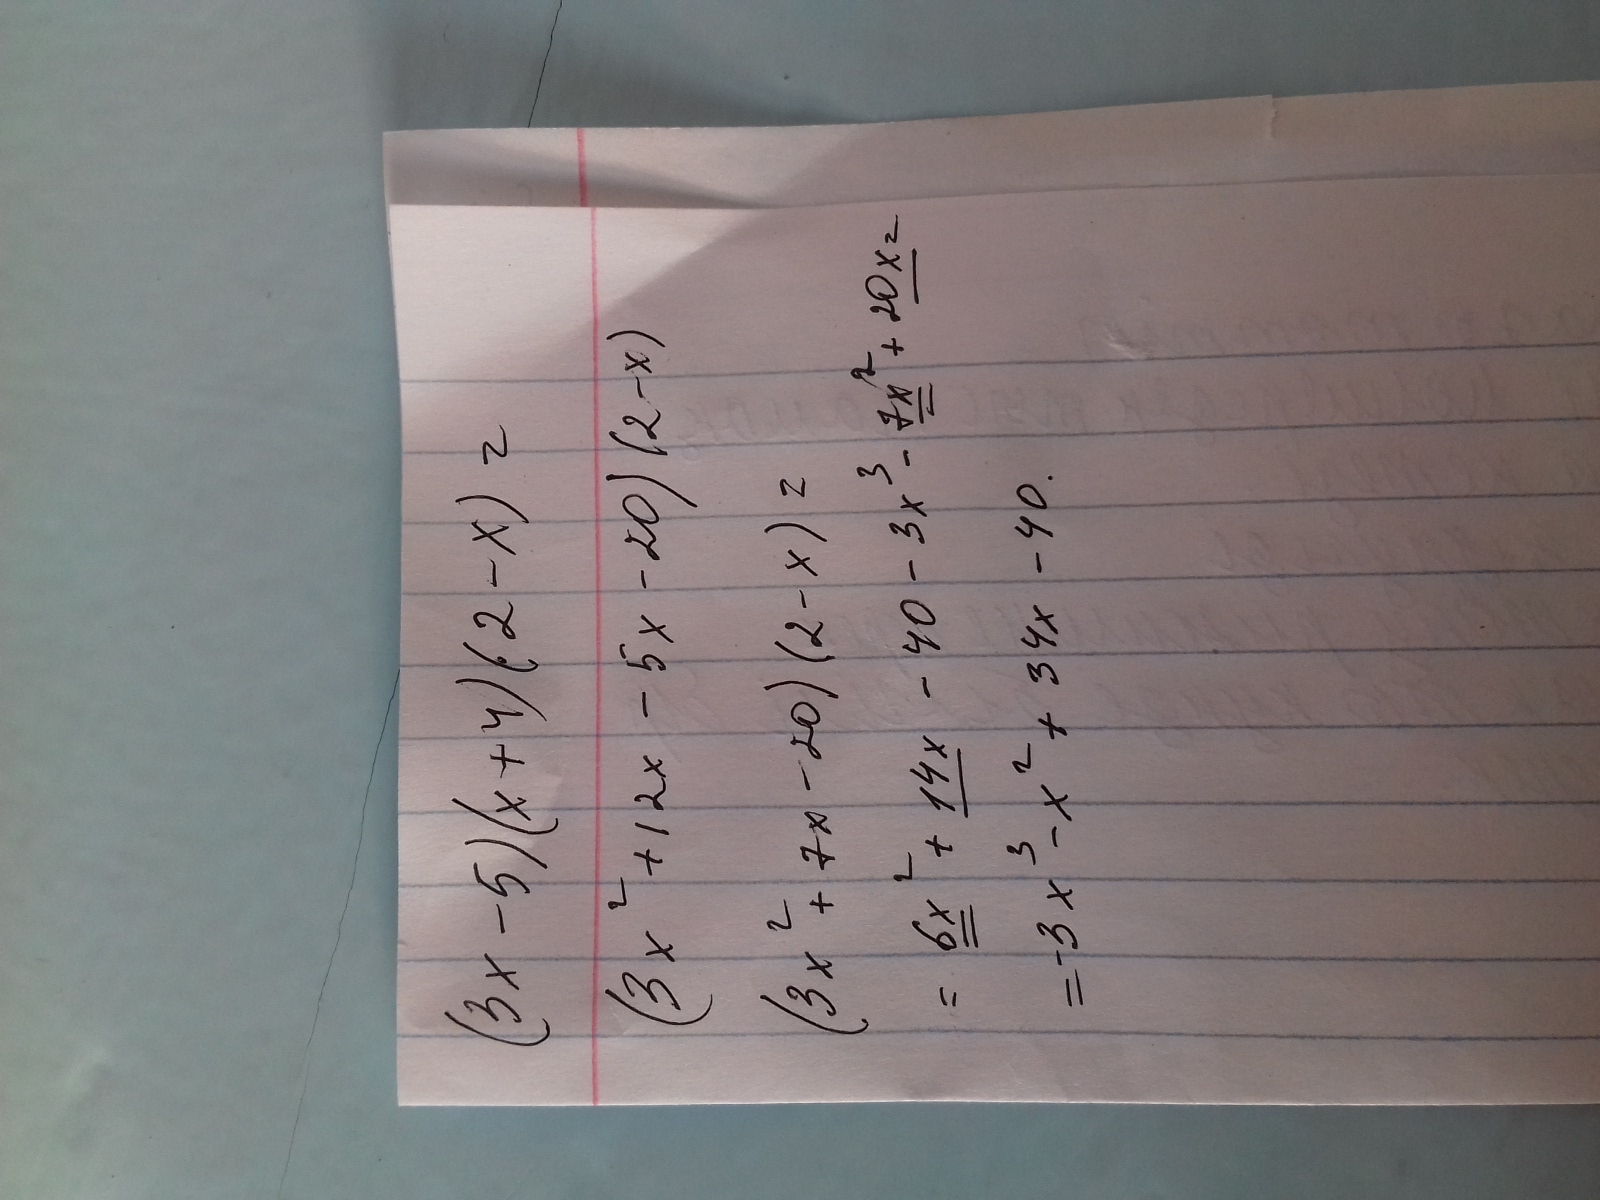 (3x-5)(x+4)(2-x)=
(3x²+12x-5x-20)(2-x)
(3x²+7x-20)(2-x)=
=6x²+14x-40-3x³-7x²+20x=
=-3x³-x²+34x-40.